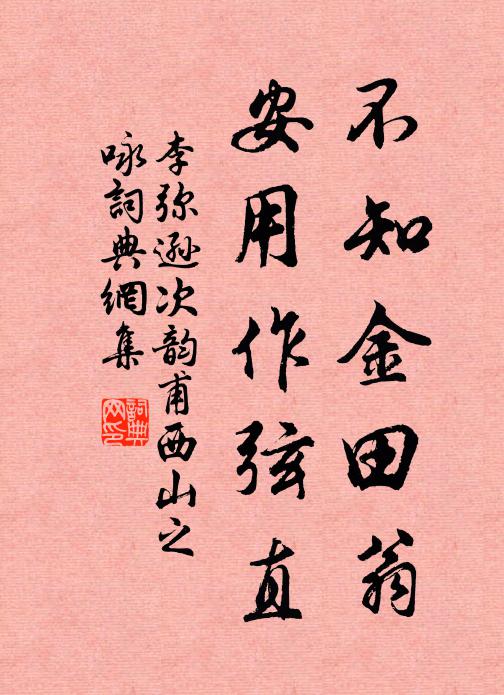 不知金田翁
安用作弦直
李弥逊次韵甫西山之
咏詞典網集
詞典
网印